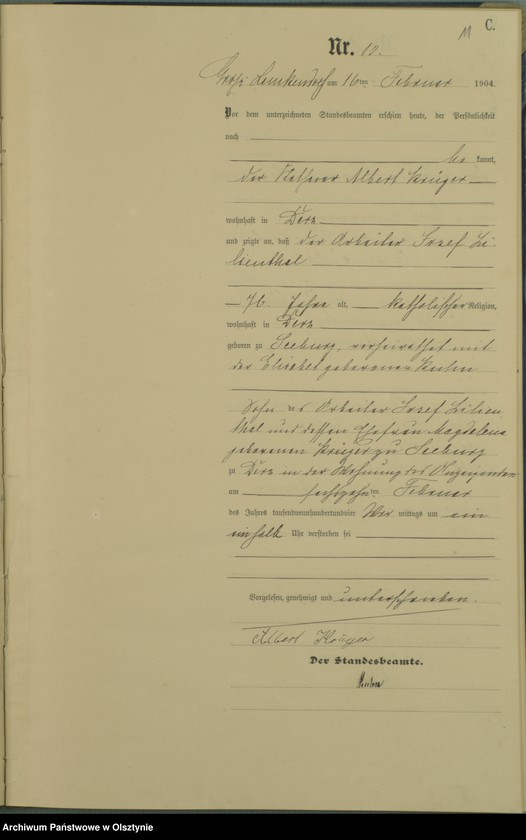 11 C.
Nr. 10.
Groß Lemkendorf am 16ten Februar 1904.
Vor dem unterzeichneten Standesbeamten erschien heute, der Persönlichkeit
nach
be kannt,
der Albert Krüger
wohnhaft in Derz
und zeigte an, daß der Arbeiter Josef Li-
lienthal
76 Jahre alt, katholischer Religion,
wohnhaft in Derz
geboren zu Seeburg, verheirathet mit
der geborenen Kuhn
Sohn des Arbeiter Josef Lilien
thal und dessen Ehefrau Magdalena
geborenen Krüger zu Seeburg
zu Derz in der Wohnung des Anzeigenden
am sechszehnten Februar
des Jahres tausendneunhundertundvier Vor mittags um ein
einhalb Uhr verstorben sei
Vorgelesen, genehmigt und unterschrieben.
Albert Krüger
Der Standesbeamte.
Archiwum Państwowe w Olsztynie